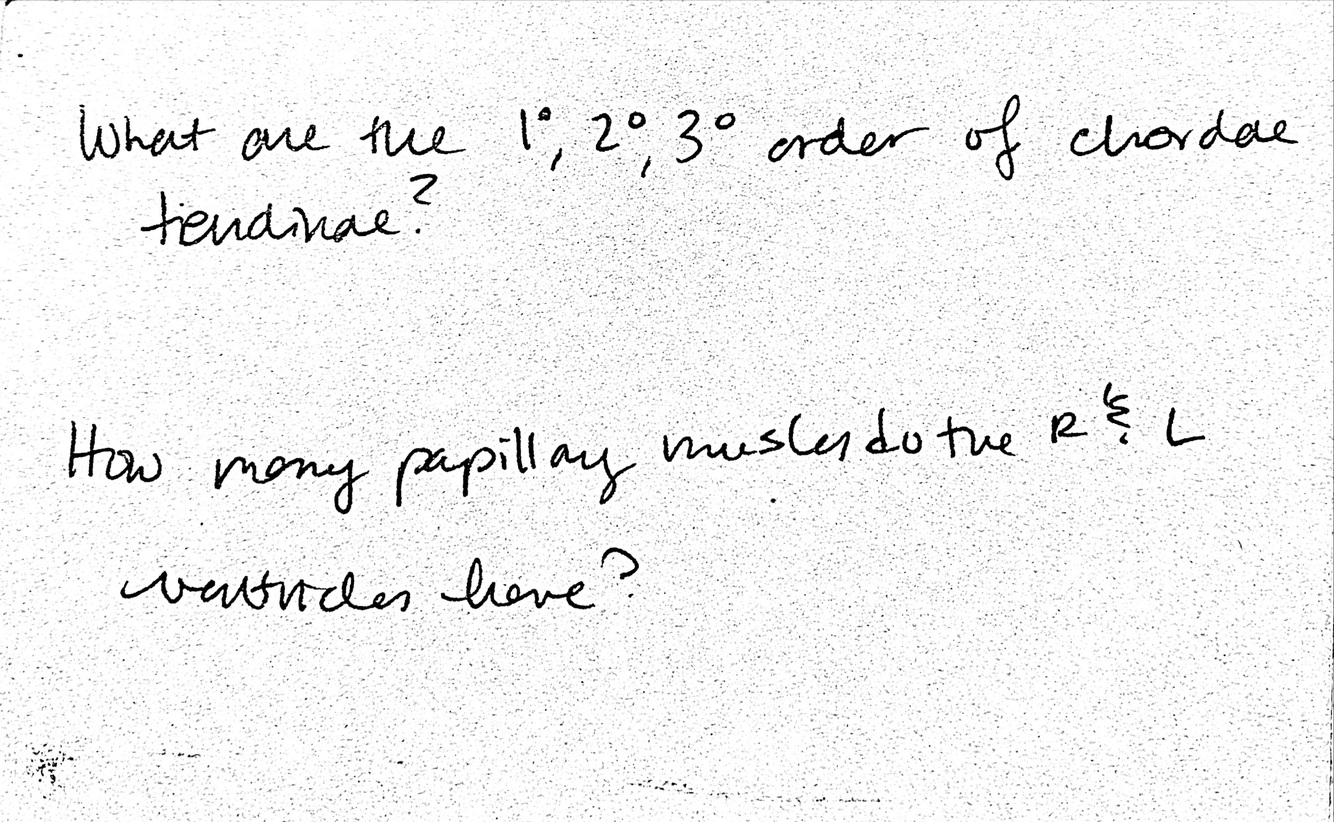 What are the 1°, 2°, 3° order of chordae
tendinae?
How many papillary musles do the R & L
ventricles have?